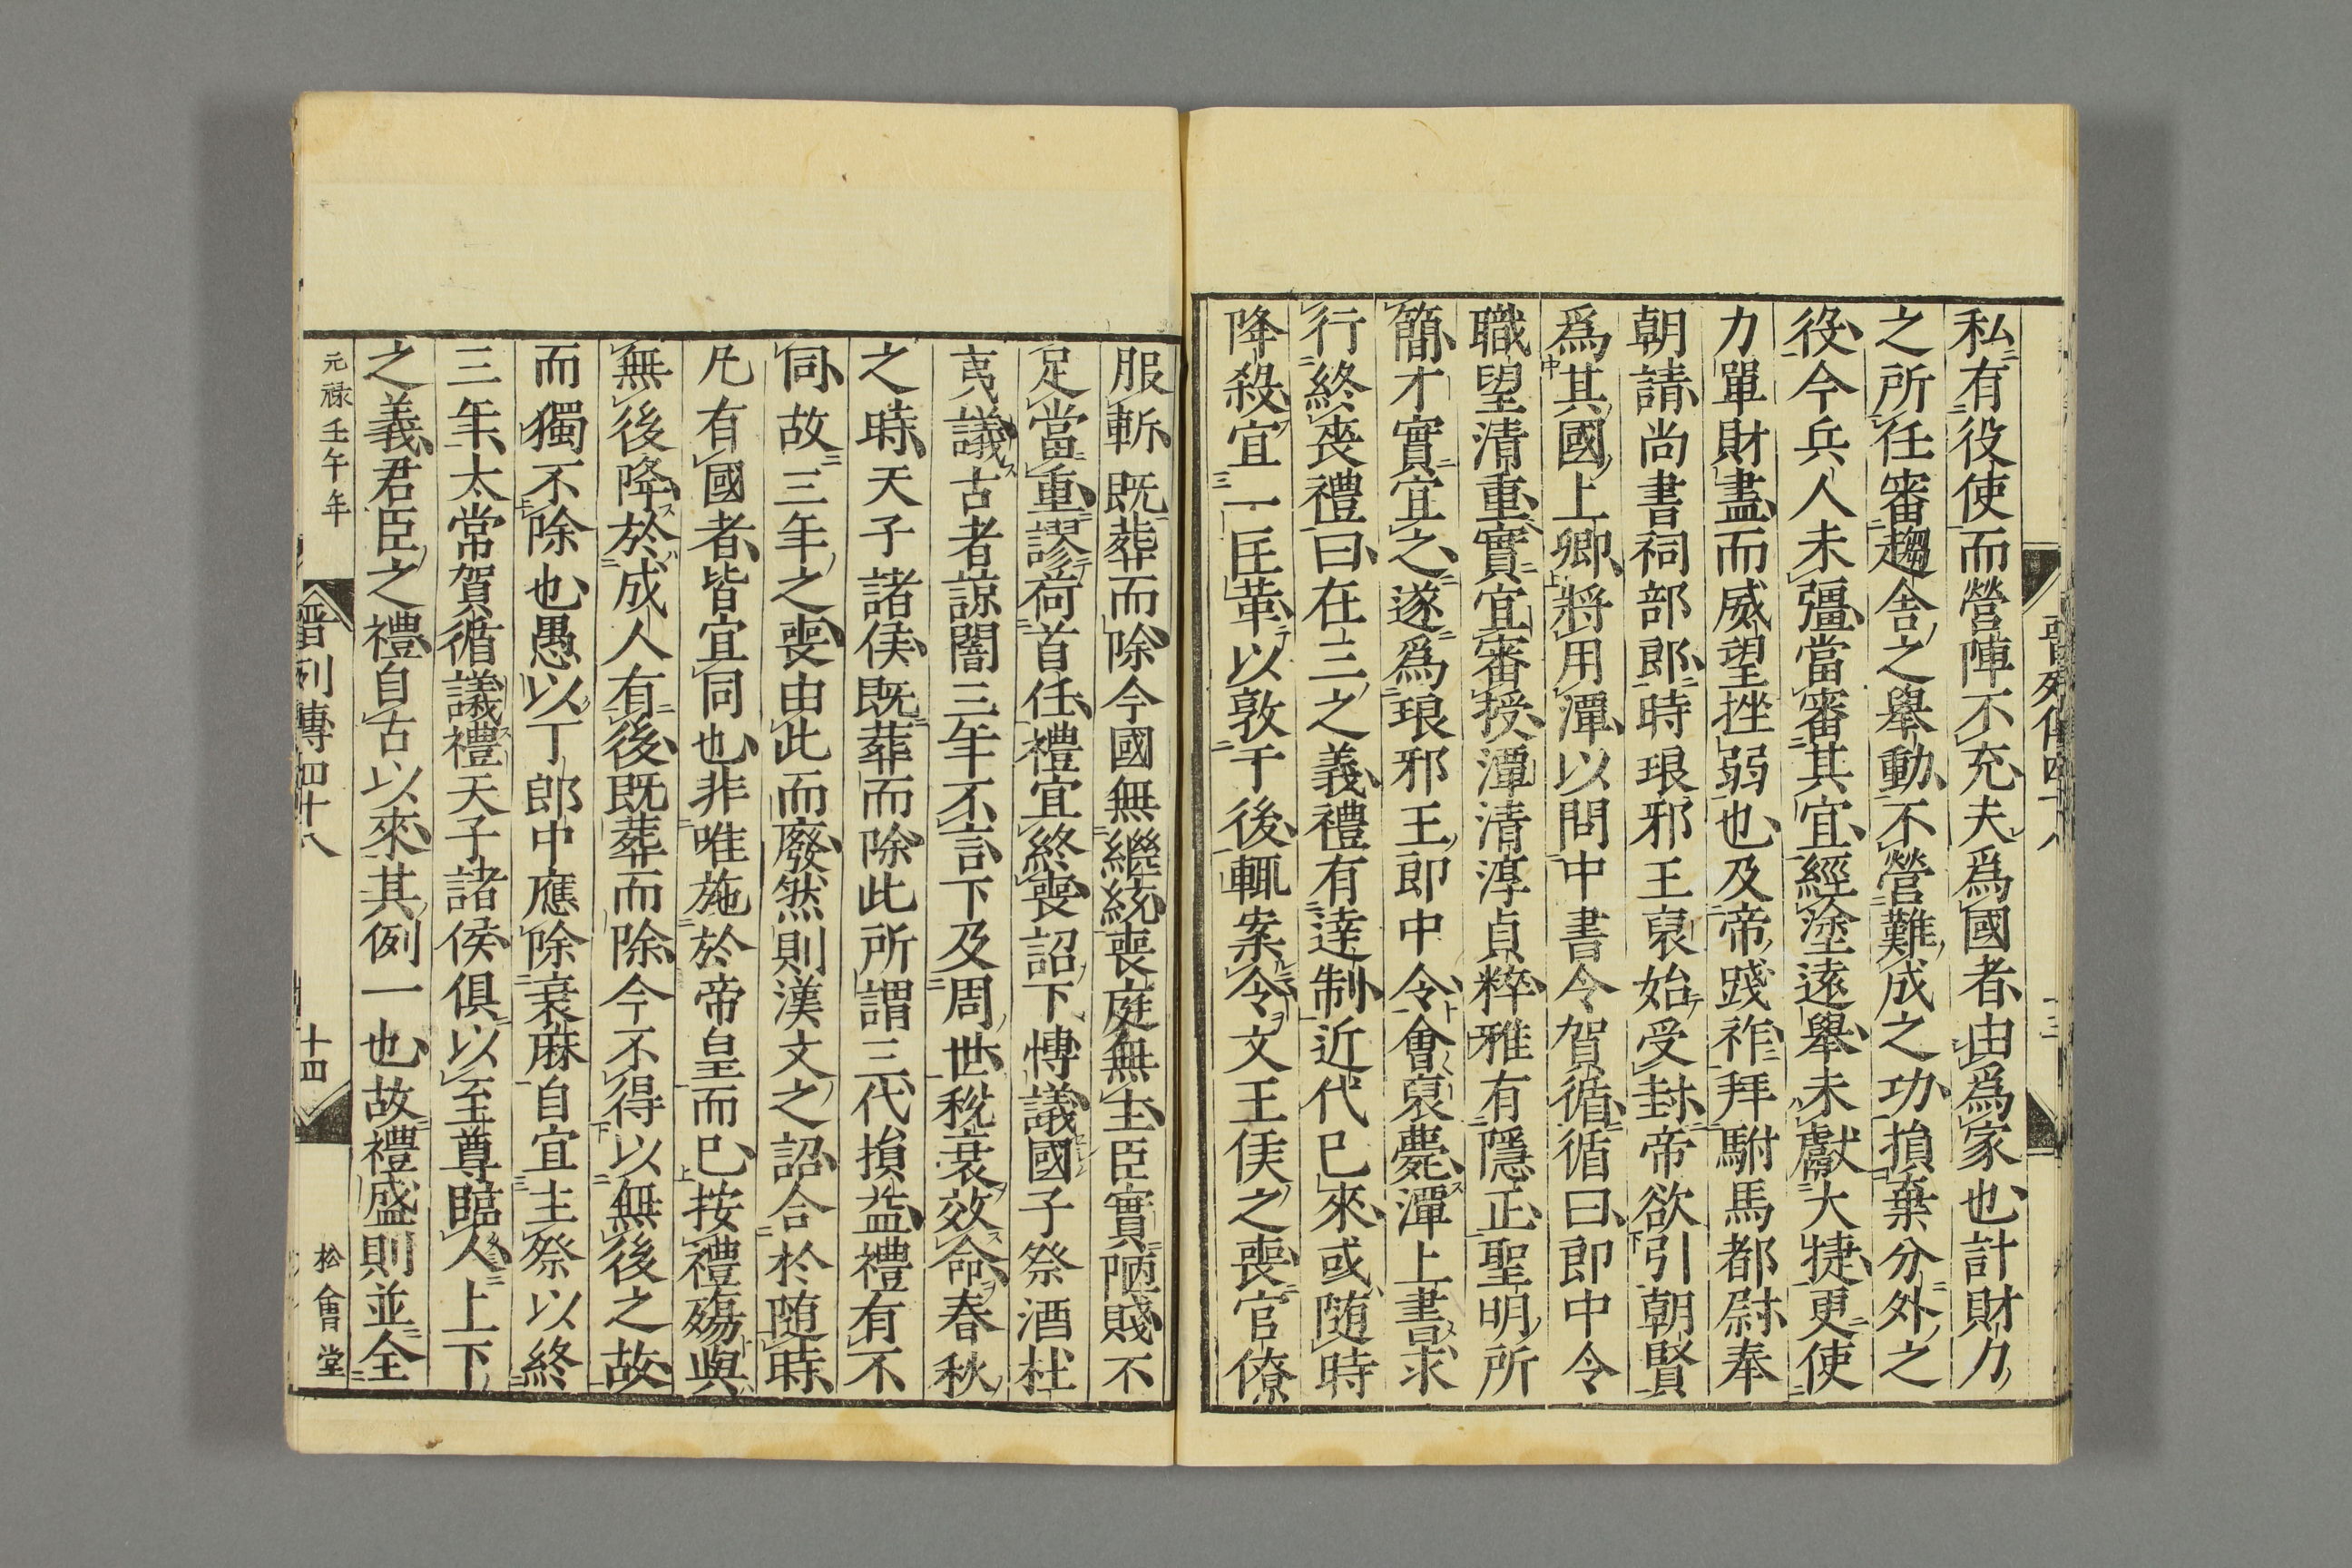 私有役使而營陣不充夫爲國者由爲家也計財力
之所任審趨舍之舉動不營難成之功損棄分外之
役今兵人未彊當審其宜經塗遠舉未獻大捷更使
力單財盡而威望挫弱也及帝踐祚拜駙馬都尉奉
朝請尚書祠部郎時琅邪王裒始受封帝欲引朝賢
爲其國上卿將用潭以問中書令賀循循曰郎中令
職望清重實宜審授潭清淳貞粹雅有隱正聖明所
簡才實宜之遂爲琅邪王郎中令會裒薨潭上書求
行終喪禮曰在三之義禮有達制近代已來或随時
降殺宜一匡革以敦于後輒案令文王侯之喪官僚
服斬既葬而除今國無繼統喪庭無主臣實陋賤不
足當重謬荷首任禮宜終喪詔下博議國子祭酒杜
夷議古者諒闇三年不言下及周世稅衰效命春秋
之時天子諸侯既葬而除此所謂三代損益禮有不
同故三年之喪由此而廢然則漢文之詔合於随時
凡有國者皆宜同也非唯施於帝皇而已按禮殤與
無後降於成人有後既葬而除今不得以無後之故
而獨不除也愚以丁郎中應除衰麻自宜主祭以終
三年太常賀循議禮天子諸侯俱以至尊臨人上下
之義君臣之禮自古以來其例一也故禮盛則並全
元祿壬午年
晋列傳四十八
十四
松會堂